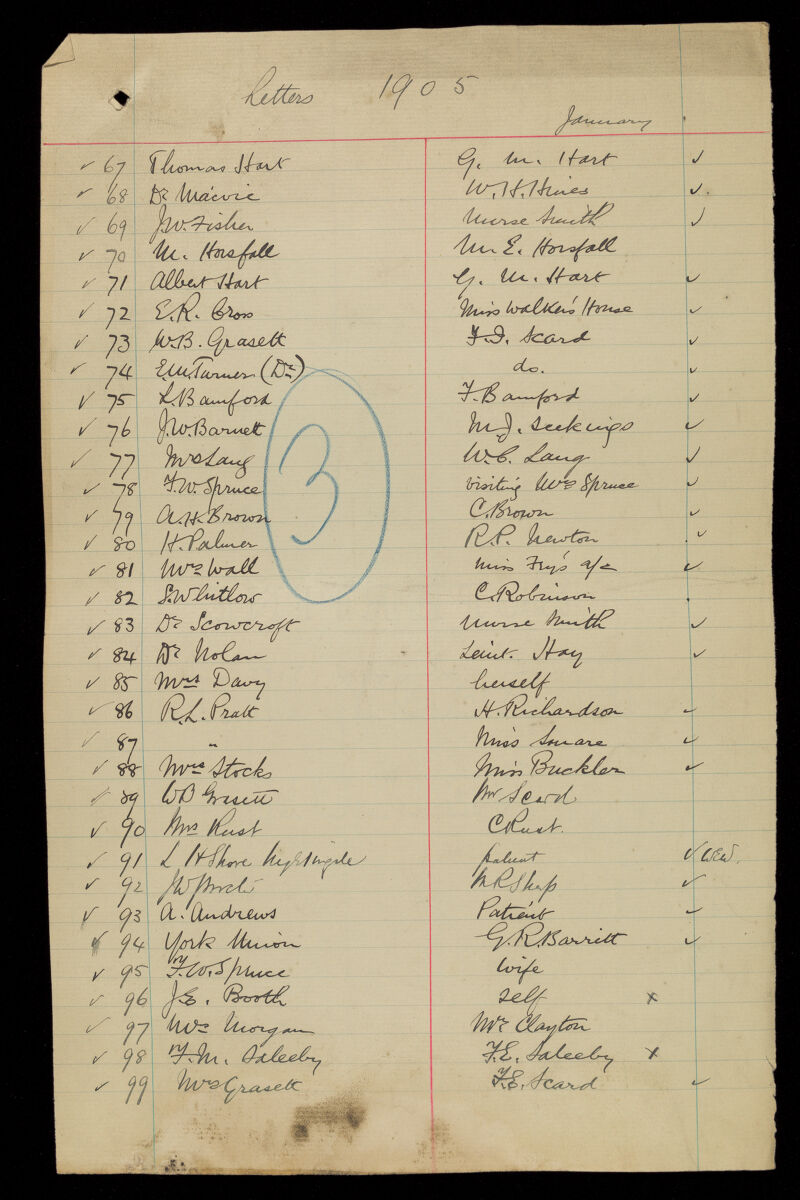 Letters 1905
January
✓ 67 Thomas Hart G. M. Hart ✓
✓ 68 Dr Macvie W. H. Hines ✓
✓ 69 J. W. Fisher Nurse Smith ✓
✓ 70 M. Horsfall M. E. Horsfall
✓ 71 Albert Hart G. M. Hart ✓
✓ 72 E. R. Cross Miss Walker's House ✓
✓ 73 W. B. Grasett F. I. Scard ✓
✓ 74 E. M. Turner (Dr) do. ✓
✓ 75 L. Bamford F. Bamford ✓
✓ 76 J. W. Barnett M. J. Seekings ✓
✓ 77 Mrs Lang W. C. Lang ✓
✓ 78 F. W. Spruce visiting Mrs Spruce ✓
✓ 79 A. H. Brown C. Brown ✓
✓ 80 H. Palmer R. P. Newton ✓
✓ 81 Mrs Wall Miss Fry's a/c ✓
✓ 82 S. Whitlow C. Robinson
✓ 83 Dr Scowcroft Nurse Smith ✓
✓ 84 Dr Nolan Leint. Hay ✓
✓ 85 Mrs Davy herself
✓ 86 R. L. Pratt H. Richardson ✓
✓ 87 " Miss Square ✓
✓ 88 Mrs Stocks Miss Buckler ✓
✓ 89 W B Grasett Mr Scard
✓ 90 Mrs Rust C Rust.
✓ 91 L H Shore Nightingale patient ✓ WEW.
✓ 92 M R Sharp ✓
✓ 93 A. Andrews Patient ✓
✓ 94 York Union G. R. Barritt ✓
✓ 95 F. W. Spruce wife
✓ 96 J. E. Booth self x
✓ 97 Mrs Morgan Mrs Clayton
✓ 98 F. M. Saleeby F. E. Saleeby x
✓ 99 Mrs Grasett F. E. Scard ✓
3